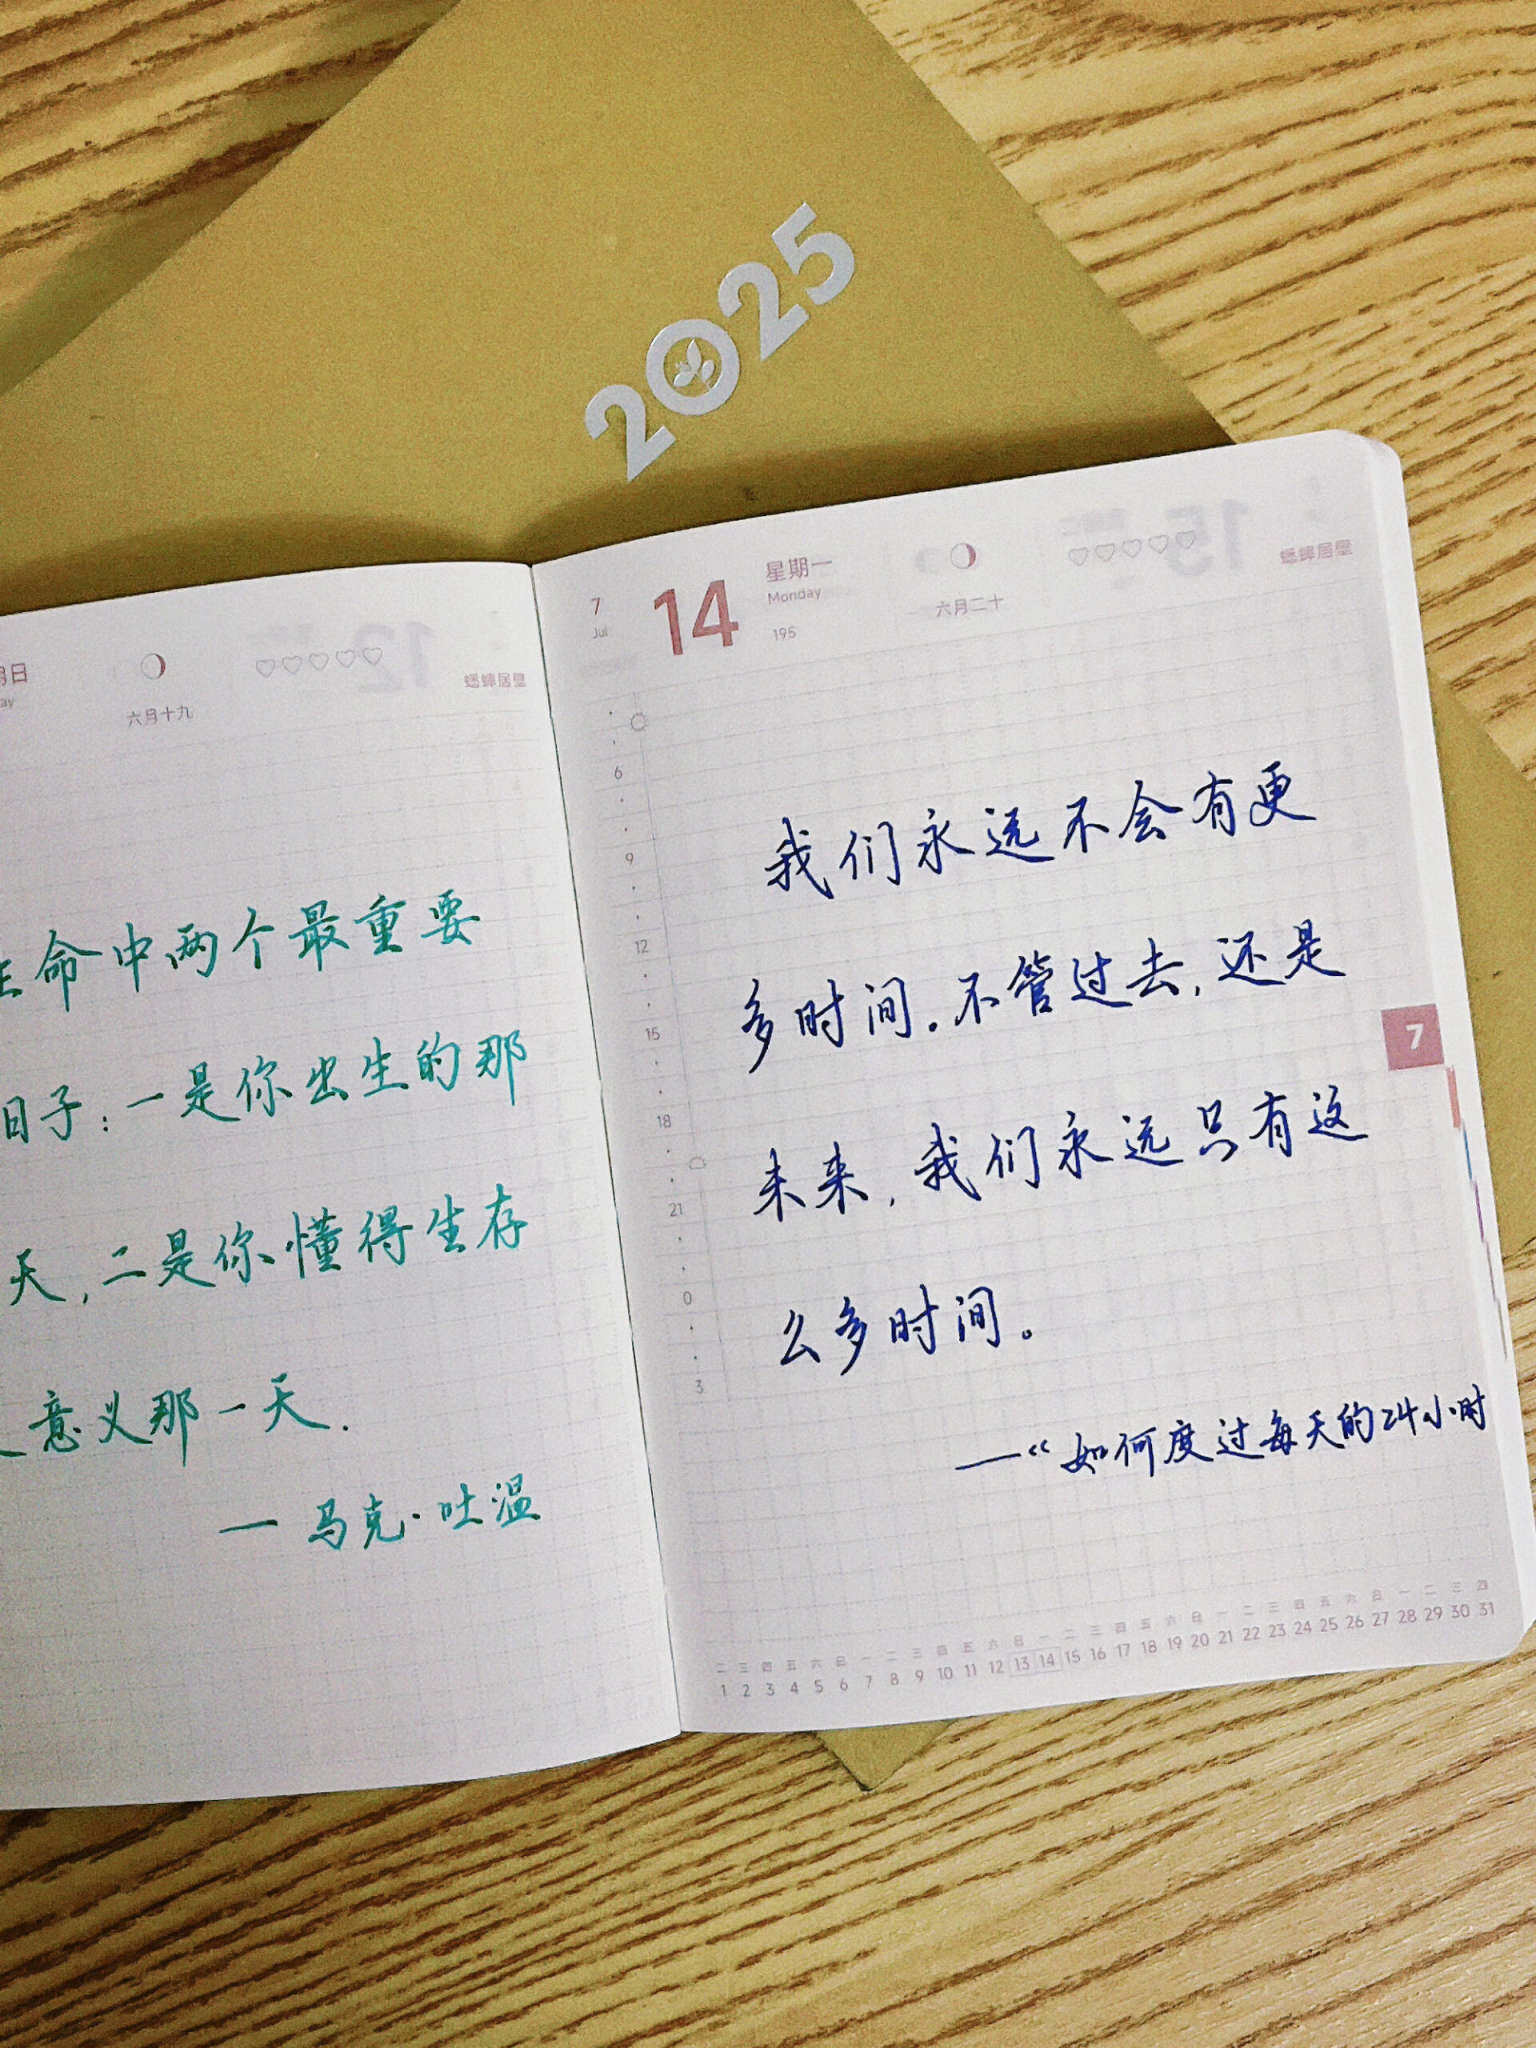 2025
月日
ay
六月十九
蟋蟀居壁
生命中两个最重要
日子：一是你出生的那
天，二是你懂得生存
意义那一天.
— 马克·吐温
7
Jul
14
星期一
Monday
195
六月二十
蟋蟀居壁
6
9
12
15
18
21
0
3
我们永远不会有更
多时间。不管过去，还是
未来，我们永远只有这
么多时间。
—“如何度过每天的24小时
7
二 三 四 五 六 日 一 二 三 四 五 六 日 一 二 三 四 五 六 日 一 二 三 四 五 六 日 一 二 三 四
1 2 3 4 5 6 7 8 9 10 11 12 13 14 15 16 17 18 19 20 21 22 23 24 25 26 27 28 29 30 31